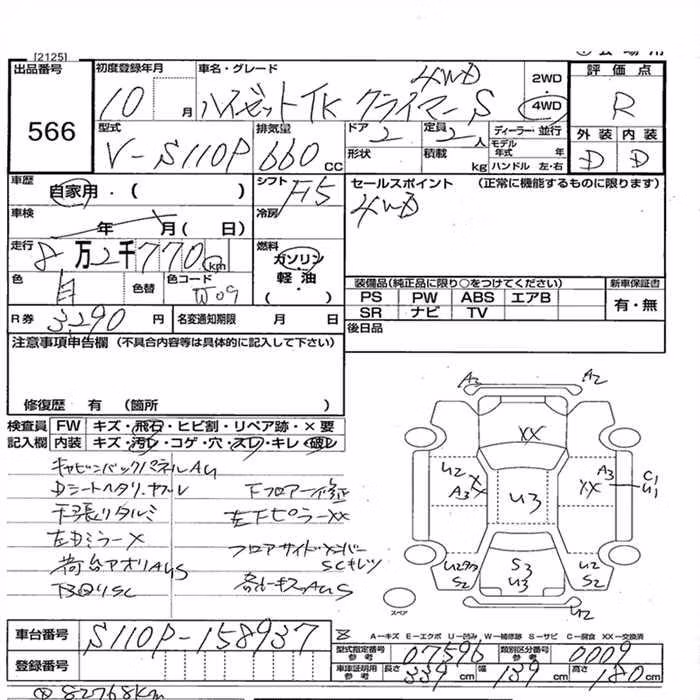 [2125]
出品番号
566
初度登録年月
10 月
車名・グレード
ハイゼットTK クライマーS
4WD
2WD
4WD
評価点
R
外装 内装
D D
型式
V-S110P
排気量
660 CC
ドア
2
定員
2人
形状
積載
kg
ディーラー・並行
モデル年式 年
ハンドル 左・右
車歴
自家用・( )
シフト
F5
セールスポイント (正常に機能するものに限ります)
4WD
車検
年 月( 日)
冷房
走行
8万2千770km
燃料
ガソリン
軽油
( )
色
白
色替
色コード
W09
装備品(純正品に限り○をつけてください)
PS PW ABS エアB
SR ナビ TV
新車保証書
有・無
R券
3290 円
名変通知期限 月 日
後日品
注意事項申告欄 (不具合内容等は具体的に記入して下さい)
修復歴 有 (箇所 )
検査員記入欄
FW キズ・飛石・ヒビ割・リペア跡・×要
内装 キズ・汚レ・コゲ・穴・スレ・キレ・破レ
キャビンバックパネルAU
Dシートヘタリ・ヤブレ
下フロアー修正
天張りタルミ
左下ピラーXX
左ドミラーX
フロアサイドメンバー
SCキレツ
荷台アオリAUS
A2 A2
XX
U2
A3
XX
U3
A3
XX
C1
U1
S2
S3
U3
U2
S2
U2
スペア
車台番号
S110P-158937
登録番号
A−キズ E−エクボ U−凹み W−補修跡 S−サビ C−腐食 XX−交換済
型式指定番号 参考
07596
類別区分番号 参考
0009
車庫証明用 参考
長さ 339 cm
幅 139 cm
高さ 180 cm
82768km